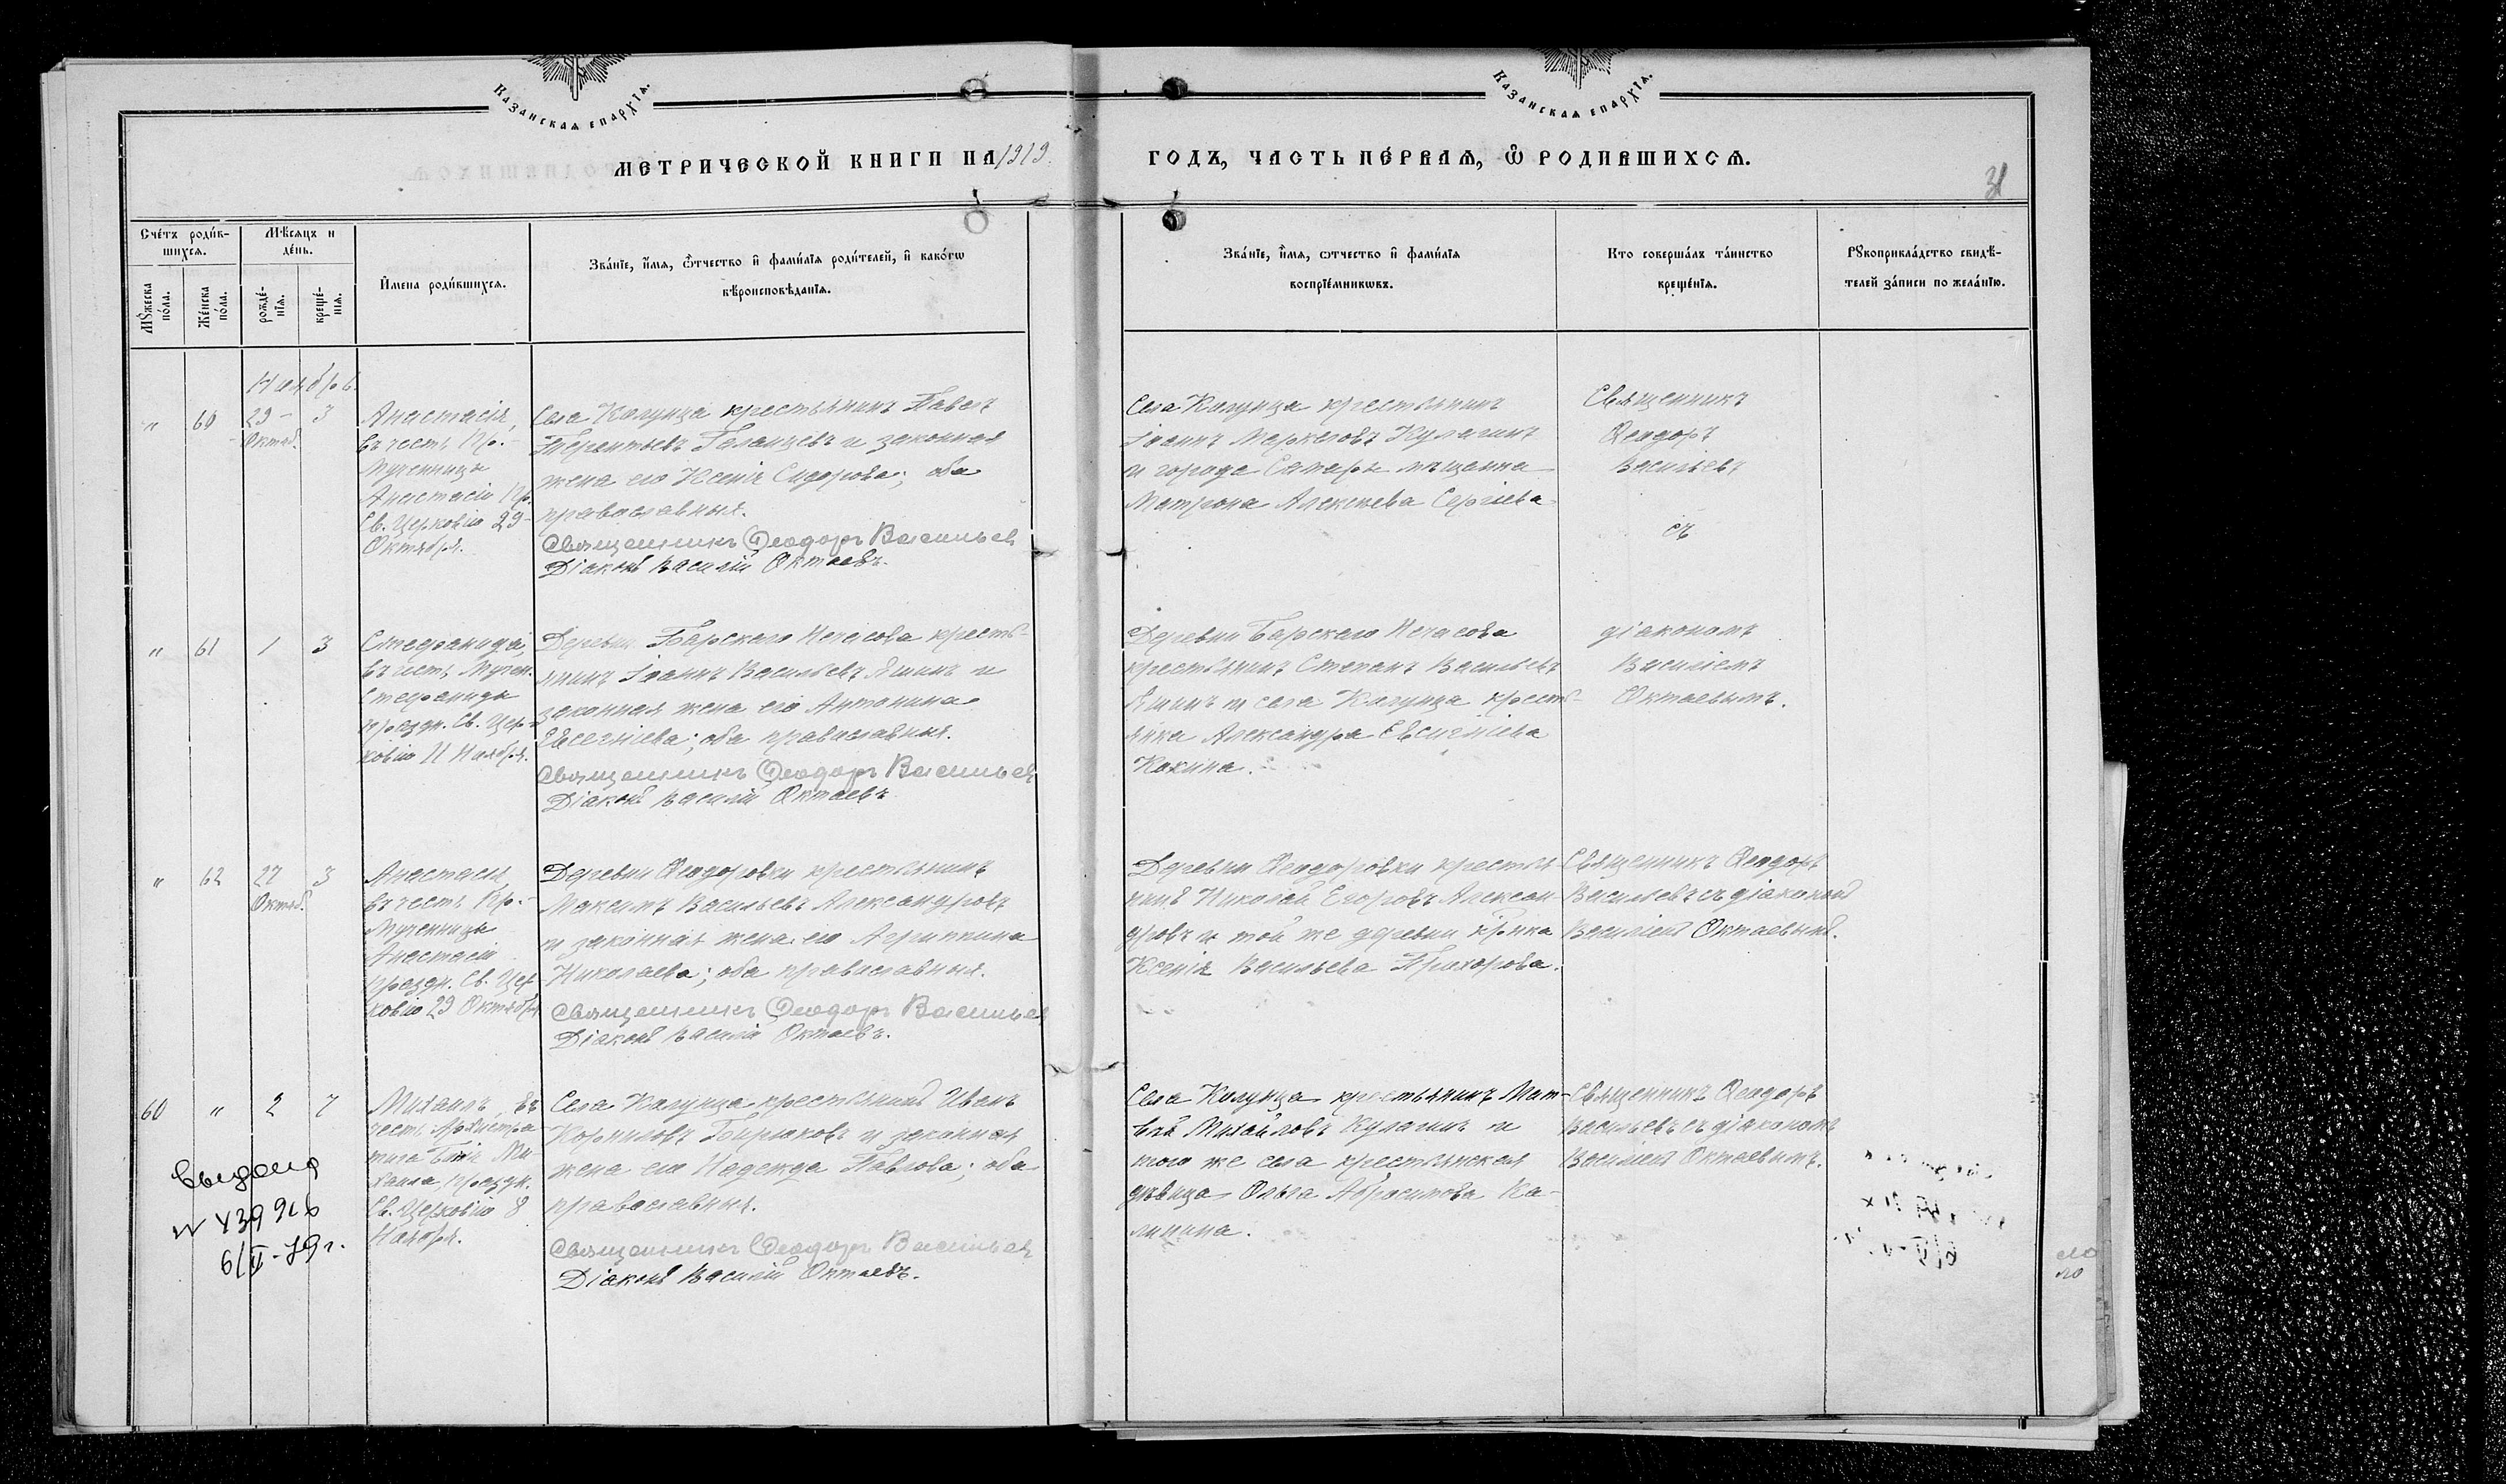 Казанская епархія.
Казанская епархія.
МЕТРИЧЕСКОЙ КНИГИ НА 1919
ГОДЪ, ЧАСТЬ ПЕ́РВАѦ, Ѽ РОДИВШИХСѦ.
31
Сче́тъ роди́в-
шихсѧ.
Мѣсѧцъ и
де́нь.
Мꙋ́жеска
по́ла.
Же́нска
по́ла.
рожде́-
нїѧ.
креще́-
нїѧ.
И҆мена роди́вшихсѧ.
Зва́нїе, и҆́мѧ, ѻ҆́тчество и҆ фами́лїѧ роди́телей, и҆ како́гѡ
вѣроисповѣ́данїѧ.
Зва́нїе, и҆́мѧ, ѻтчество и҆ фами́лїѧ
воспрїе́мникѡвъ.
Кто соверша́лъ та́инство
креще́нїѧ.
Рꙋкоприкла́дство свидѣ́-
телей за́писи по жела́нїю.
Ноябрь.
" 60 29 - 3
Октяб.
Анастасія,
въ честь Пр.-
Мученицы
Анастасіи пр.
Св. Церковію 29-
Октября.
Села Колунца крестьянинъ Павелъ
Терентьевъ Галанцевъ и законная
жена его Ксенія Сидорова; оба
православныя.
Священникъ Ѳеодоръ Васильев
Діаконъ Василій Октаевъ.
Села Колунца крестьянинъ
Іоаннъ Маркеловъ Кулагинъ
и города Самары мѣщанка
Матрона Алексѣева Сергіева
Священникъ
Ѳеодоръ
Васильевъ
съ
" 61 1 3
Стефанида,
въ честь Мучен.
Стефаниды
праздн. Св. Цер-
ковію 11 Ноября.
Деревни Барского Нечасова кресть-
янинъ Іоаннъ Васильевъ Яшинъ и
законная жена его Антонина
Евсегніева; оба православныя.
Священникъ Ѳеодоръ Васильев
Діаконъ Василій Октаевъ
Деревни Барского Нечасова
крестьянинъ Степанъ Васильевъ
Яшинъ и села Колунца кресть-
янка Александра Евсигніева
Кокина.
діакономъ
Василіемъ
Октаевымъ.
" 62 27 3
Октяб.
Анастасія
въ честь Пр.-
Мученицы
Анастасіи
праздн. Св. Цер-
ковію 29 Октября
Деревни Ѳеодоровки крестьянинъ
Максимъ Васильевъ Александровъ
и законная жена его Агриппина
Николаева; оба православныя.
Священникъ Ѳеодоръ Васильев
Діаконъ Василій Октаевъ.
Деревни Ѳеодоровки крестья-
нинъ Николай Егоровъ Алексан-
дровъ и той же деревни кр-нка
Ксенія Васильева Прохорова.
Священникъ Ѳеодоръ
Васильевъ съ діакономъ
Василіемъ Октаевымъ.
60 " 2 7
Михаилъ, въ
честь Архистра-
тига Божія Ми-
хаила, праздн.
Св. Церковію 8
Ноября.
Села Колунца крестьянинъ Иванъ
Корниловъ Бирюковъ и законная
жена его Надежда Павлова; оба
православныя.
Священникъ Ѳеодоръ Васильев
Діаконъ Василій Октаевъ.
Села Колунца крестьянинъ Мат-
вѣй Михайловъ Кулагинъ и
того же села крестьянская
дѣвица Ольга Абросимова Ка-
линина.
Священникъ Ѳеодоръ
Васильевъ съ діакономъ
Василіемъ Октаевымъ.
Выдана